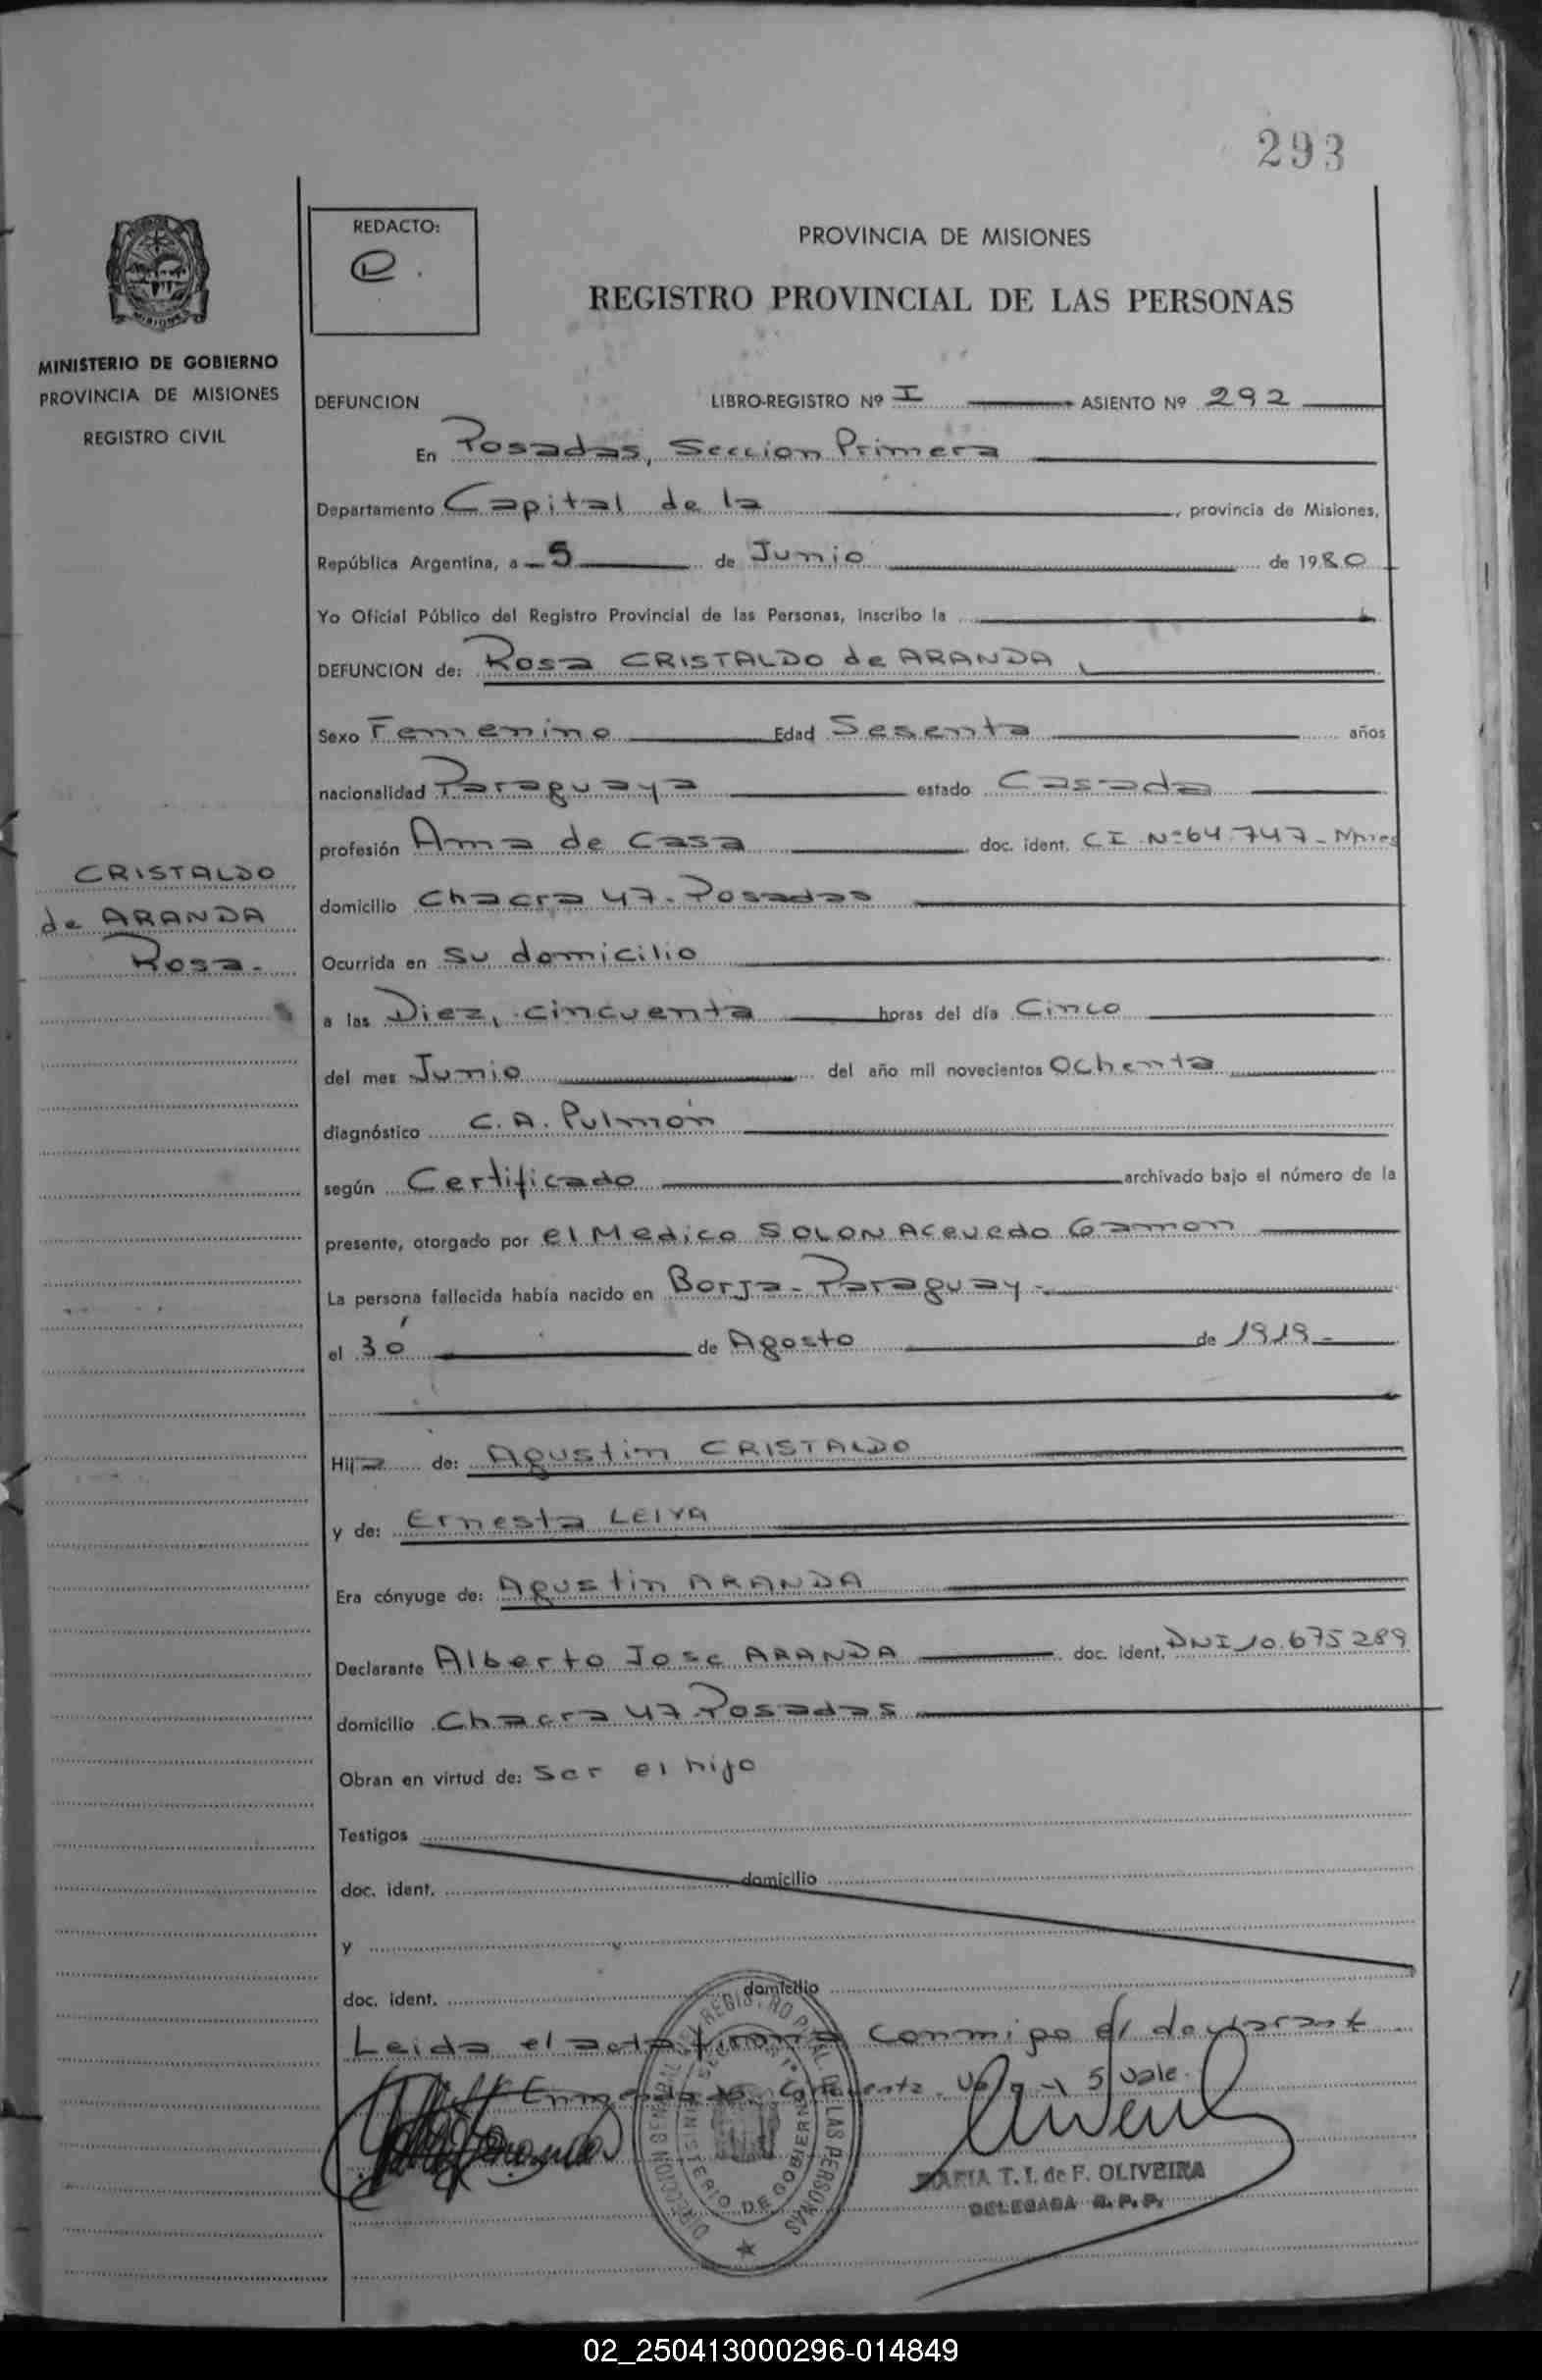 293
REDACTO:
PROVINCIA DE MISIONES
REGISTRO PROVINCIAL DE LAS PERSONAS
MINISTERIO DE GOBIERNO
PROVINCIA DE MISIONES
REGISTRO CIVIL
DEFUNCION LIBRO-REGISTRO Nº I ASIENTO Nº 292
En Posadas, Seccion Primera
Departamento Capital de la , provincia de Misiones,
República Argentina, a 5 de Junio de 1980
Yo Oficial Público del Registro Provincial de las Personas, inscribo la
DEFUNCION de: Rosa CRISTALDO de ARANDA
Sexo Femenino Edad Sesenta años
nacionalidad Paraguaya estado Casada
profesión Ama de casa doc. ident. CI Nº 64.747 - Mnes
CRISTALDO
de ARANDA
Rosa.
domicilio Chacra 47. Posadas
Ocurrida en su domicilio
a las Diez, cincuenta horas del día Cinco
del mes Junio del año mil novecientos Ochenta
diagnóstico C.A. Pulmón
según Certificado archivado bajo el número de la
presente, otorgado por el Medico SOLON Acevedo Gamon
La persona fallecida había nacido en Borja - Paraguay -
el 30 de Agosto de 1919 -
Hija de: Agustin CRISTALDO
y de: Ernesta LEIVA
Era cónyuge de: Agustin ARANDA
Declarante Alberto Jose ARANDA doc. ident. DNI 10.675289
domicilio Chacra 47. Posadas
Obran en virtud de: Ser el hijo
Testigos
doc. ident. domicilio
y
doc. ident. domicilio
Leida el acta firma conmigo el declarant
vale.
DIRECCION GENERAL DEL REGISTRO PCIAL. DE LAS PERSONAS
MINISTERIO DE GOBIERNO
MARIA T. I. de F. OLIVEIRA
DELEGADA R. P. P.
02_250413000296-014849